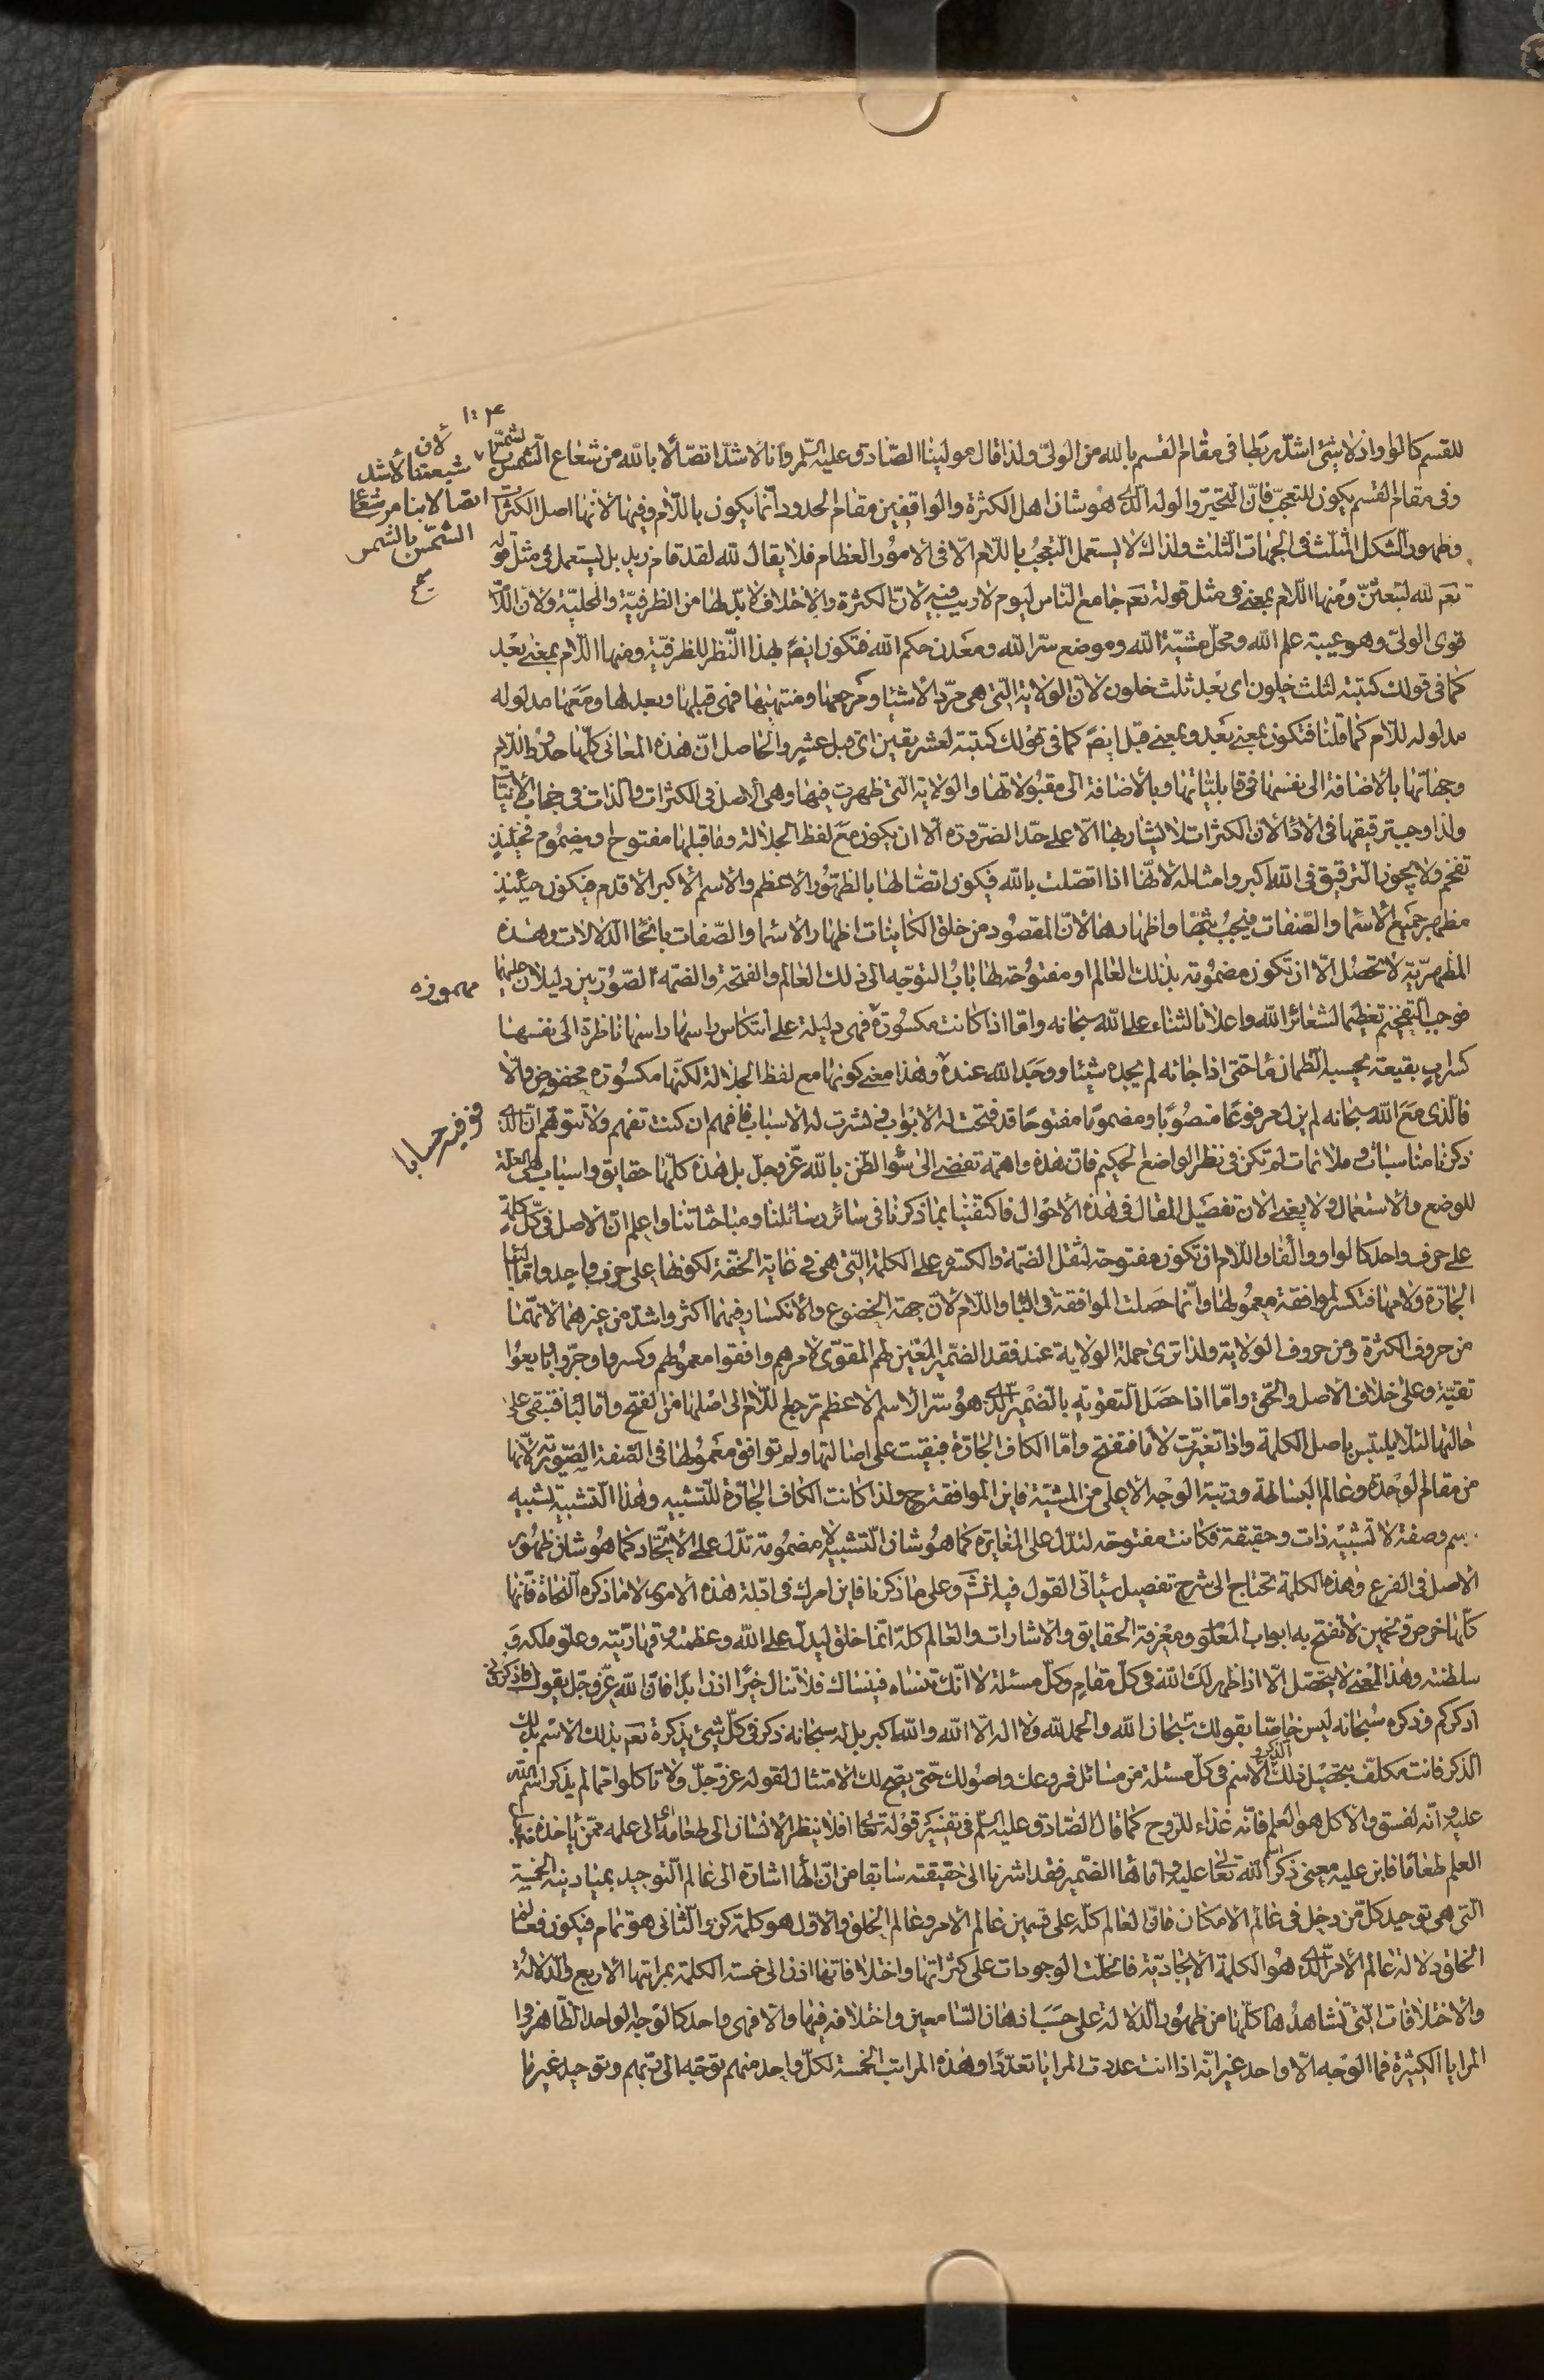 للقسم كالواو اذ لا شئ اشدّ ربطا فى مقام القسم بالله من الولىّ ولذا قال مولينا الصّادق عليه السّلم وانا لاشدّ اتصّالا بالله من شعاع الشّمس بالشّمس
لان شيعتنا لأشد
اتصالا بنا من شعاع
الشّمس بالشمس
صح
وفى مقام القسم يكون للتعجّب فانّ التّحيّر والوله الّذى هو شان اهل الكثرة والواقفين مقام الحدود انّما يكون باللّام وفيها لأنها اصل الكثرات
وظهور الشكل المثلّث فى الجهات الثلث ولذلك لا يستعمل التّعجّب باللّام الّا فى الامور العظام فلا يقال لله لقد قام زيد بل يستعمل فى مثل قوله
نعم لله لتبعثنّ ومنها اللّام بمعنى فى مثل قوله تعم جامع النّاس ليوم لا ريب فيه لانّ الكثرة والاختلاف لا بدّ لها من الظرفيّة والمحليّة ولان اللّام
قوى الولىّ وهو عيبة علم الله ومحلّ مشيّة الله وموضع سرّ الله ومعدن حكم الله فتكون ايضً بهذا النّظر للظرفيّة ومنها اللّام بمعنى بعد
كما فى قولك كتبته لثلث خلون اى بعد ثلث خلون لانّ الولاية الّتى هى مردّ الاشيا ومرجعها ومنتهيها فهى قبلها وبعدها ومعها مدلوله
مدلوله للّام كما قلنا فتكون بمعنى بعد وبمعنى قبل ايضً كما فى قولك كتبته لعشر بقين اى قبل عشرٍ والحاصل انّ هذه المعانى كلّها حدود اللّام
وجهاتها بالاضافة الى نفسها فى قابليّاتها وبالاضافة الى مقبولاتها والولاية الّتى ظهرت فيها وهى الاصل فى الكثرات والذات فى جهات الانيّات
ولذا وجب ترقيقها فى الاداء لان الكثرات لا يشار بها الّا على حدّ الضّرورة الّا ان يكون مع لفظ الجلالة وما قبلها مفتوح او مضموم فحينئذٍ
تفخم ولا يجوز التّرقيق فى الله اكبر وامثاله لانّها اذا اتصّلت بالله فيكون اتصّالها بالظهور الاعظم والاسم الاكبر الاقدم فيكون حينئذٍ
مظهر جميع الاسما والصّفات فيجب واظهارها لانّ المقصود من خلق الكاينات اظهار الاسما والصّفات بانحا الدّلالات وهذه
المظهريّة لا تحصل الّا ان تكون مضمومة بذلك العالم او مفتوحة لها باب التوجّه الى ذلك العالم والفتحة والضمّة الصّوريّين دليلان عليهما
مهموزه
فوجب التّفخيم تعظيما لشعائر الله واعلانا لثناء على الله سبحانه وامّا اذا كانت مكسورة فهى دليلة على انتكاس راسها ناظرة الى نفسها
كسرابٍ بقيعة يحسبه الظّمان ماء حتى اذا جائه لم يجده شيئا ووجد الله عنده وهذا معنى كونها مع لفظ الجلالة لكنّها مكسورة مخفوض والّا
فوفيه حسابا
فالّذى مع الله سبحانه لم يزل مرفوعًا منصوبًا ومضمومًا مفتوحًا قد فتحت له الابواب ونشرت له الاسباب فافهم ان كنت تفهم ولا تتوّهم انّ الذى
ذكرنا مناسبات وملائمات لم تكن فى نظر الواضع الحكيم فانّ هذه واهمة تفضى الى سؤ الظّن بالله عزّ وجلّ بل هذه كلّها حقايق واسباب هى العلة
للوضع والاستعمال ولا يغنى الان تفصيل المقال فى هذه الاحوال فاكتفينا بما ذكرنا فى سائر رسائلنا ومباحثاتنا واعلم انّ الاصل فى كلّ كلمة
على حرف واحد كالواو والفا واللّام ان تكون مفتوحة لثقل الضمّة والكسرة على الكلمة الّتى هى فى غاية الخفّة لكونها على حرف واحد وامّا البا
الجارّة ولامها فتكسر لموافقة معمولها وانّما حصلت الموافقة فى البا واللّام لانّ جهة الخضوع والانكسار فيهما اكثر واشدّ من غيرهما لانّهما
من حروف الكثرة ومن حروف الولاية ولذا ترى حملة الولاية عند فقد الضّمير المعين لهم المقوّى لامرهم وافقوا معمولهم وكسروا وجرّوا وبايعوا
تقيّة وعلى خلاف الاصل والحقّ وامّا اذا حصل التّقوية بالضمير الّذى هو سّر الاسم الاعظم ترجع اللّام الى اصلها من الفتح وامّا البا فتبقى على
حالتها لئلّا يلتبس باصل الكلمة واذا تغيّرت لاما فتفتح وامّا الكاف الجارّة فبقيت على اصالتها ولم توافق معمولها فى الصّفة الصّوريّة لانّها
من مقام الوحدة وعالم البساطة ورتبة الوجه الاعلى من المشيّة فاين الموافقة ح ولذا كانت الكاف الجارّة للتّشبيه وهذا التّشبيه تشبيه
رسم وصفة لا تشبيه ذات وحقيقة فكانت مفتوحة لتدلّ على المغايرة كما هو شان التّشبيه لا مضمومة تدلّ على الاتّحاد كما هو شان ظهور
الاصل فى الفرع وهذه الكلمة تحتاج الى شرح تفصيل سياتى القول فيه انشَ وعلى ما ذكرنا فاين امرك فى ادلّة هذه الامور لا ما ذكره النّحاة فانّها
كلّها خرص وتخمين لا تفتح به ابواب المعانى ومعرفة الحقايق والاشارات والعالم كلّه انّما خلق ليدلّ على الله وعظمته وقهاريّته وعلوّ ملكه و
سلطنته وهذا المعنى لا يتحصّل الّا اذا ظهر لك الله فى كلّ مقامٍ وكلّ مسئلة لا انّك تنساه فينساك فلا تنال خيرًا اذن ابدًا فانّ الله عزّ وجلّ يقول فاذكرونى
اذكركم وذكره سبحانه ليس خاصّا بقولك سبحان الله والحمد لله ولا اله الّا الله والله اكبر بل له سبحانه ذكر فى كلّ شئ يذكره نعم بذلك الاسم بذلك
الذكر فانت مكلّف بتحصيل ذلك الذكر والاسم فى كلّ مسئلة من مسائل فروعك واصولك حتّى يصحّ لك الامتثال لقوله عزّ وجلّ ولا تاكلوا ممّا لم يذكر اسم الله
عليه وانّه لفسق والاكل هو العلم فانّه غذاء للرّوح كما قال الصّادق عليه السّلم فى تفسير قوله تعا افلا ينظر الانسان الى طعامه اى الى علمه ممّن ياخذه
العلم طعاما فاين عليه معنى ذكر اسم الله تعالى عليه وامّا هاء الضّمير فقد اشرنا الى حقيقته سابقا من انّ الها اشارة الى عالم التّوحيد بميادينه الخمسة
الّتى هى توحيد كلّ من دخل فى عالم الامكان فانّ العالم كلّه على قسمين عالم الامر وعالم الخلق والاوّل هو كلمة كن والثّانى هو تمام فيكون فعالم
الخلق دلالة عالم الامر الّذى هو الكلمة الايجاديّة فانحلّت الوجودات على كثراتها واختلافاتها اذن الى خمسة الكلمة بمراتبها الاربع والدّلالة
والاختلافات الّتى نشاهدها كلّها من ظهور الدّلالة على حسب اذهان السّامعين واختلافه فيها والّا فهى واحد كالوجه الواحد الظّاهر فى
المرايا الكثيرة فما الوجه الّا واحد غير انّه اذا انت عددت المرايا تعدّدًا وهذه المراتب الخمسة لكلّ واحد منهم توجّه الى ربّهم وتوحيد غير ما